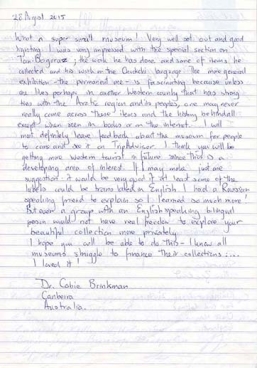 28 August 2015
What a super small museum! Very well set out and good
lighting. I was very impressed with the special section on
the work he has done and some of items he
collected and his work in the language. The more general
exhibition - the permanent one - is fascinating because unless
one lives perhaps in another Western country that has strong
ties with the Arctic region and its peoples, one may never
really come across these items and the history behind all
except when seen in books or on the internet. I will
most definitely leave feed back about this museum for people
to come and see it on TripAdvisor. I think you will be
getting more western tourists in future since this is a
developing area of interest. If I may make just one
suggestion it would be very good if at least some of the
labels could be translated in English. I had a Russian
speaking friend to explain so I learned so much more!
But even a group with an English speaking bilingual
person would not have real freedom to explore your
beautiful collection more privately.
I hope you will be able to do this - I know all
museums struggle to finance their collections ...
I loved it!
Dr. Cobie Brinkman
Canberra
Australia.